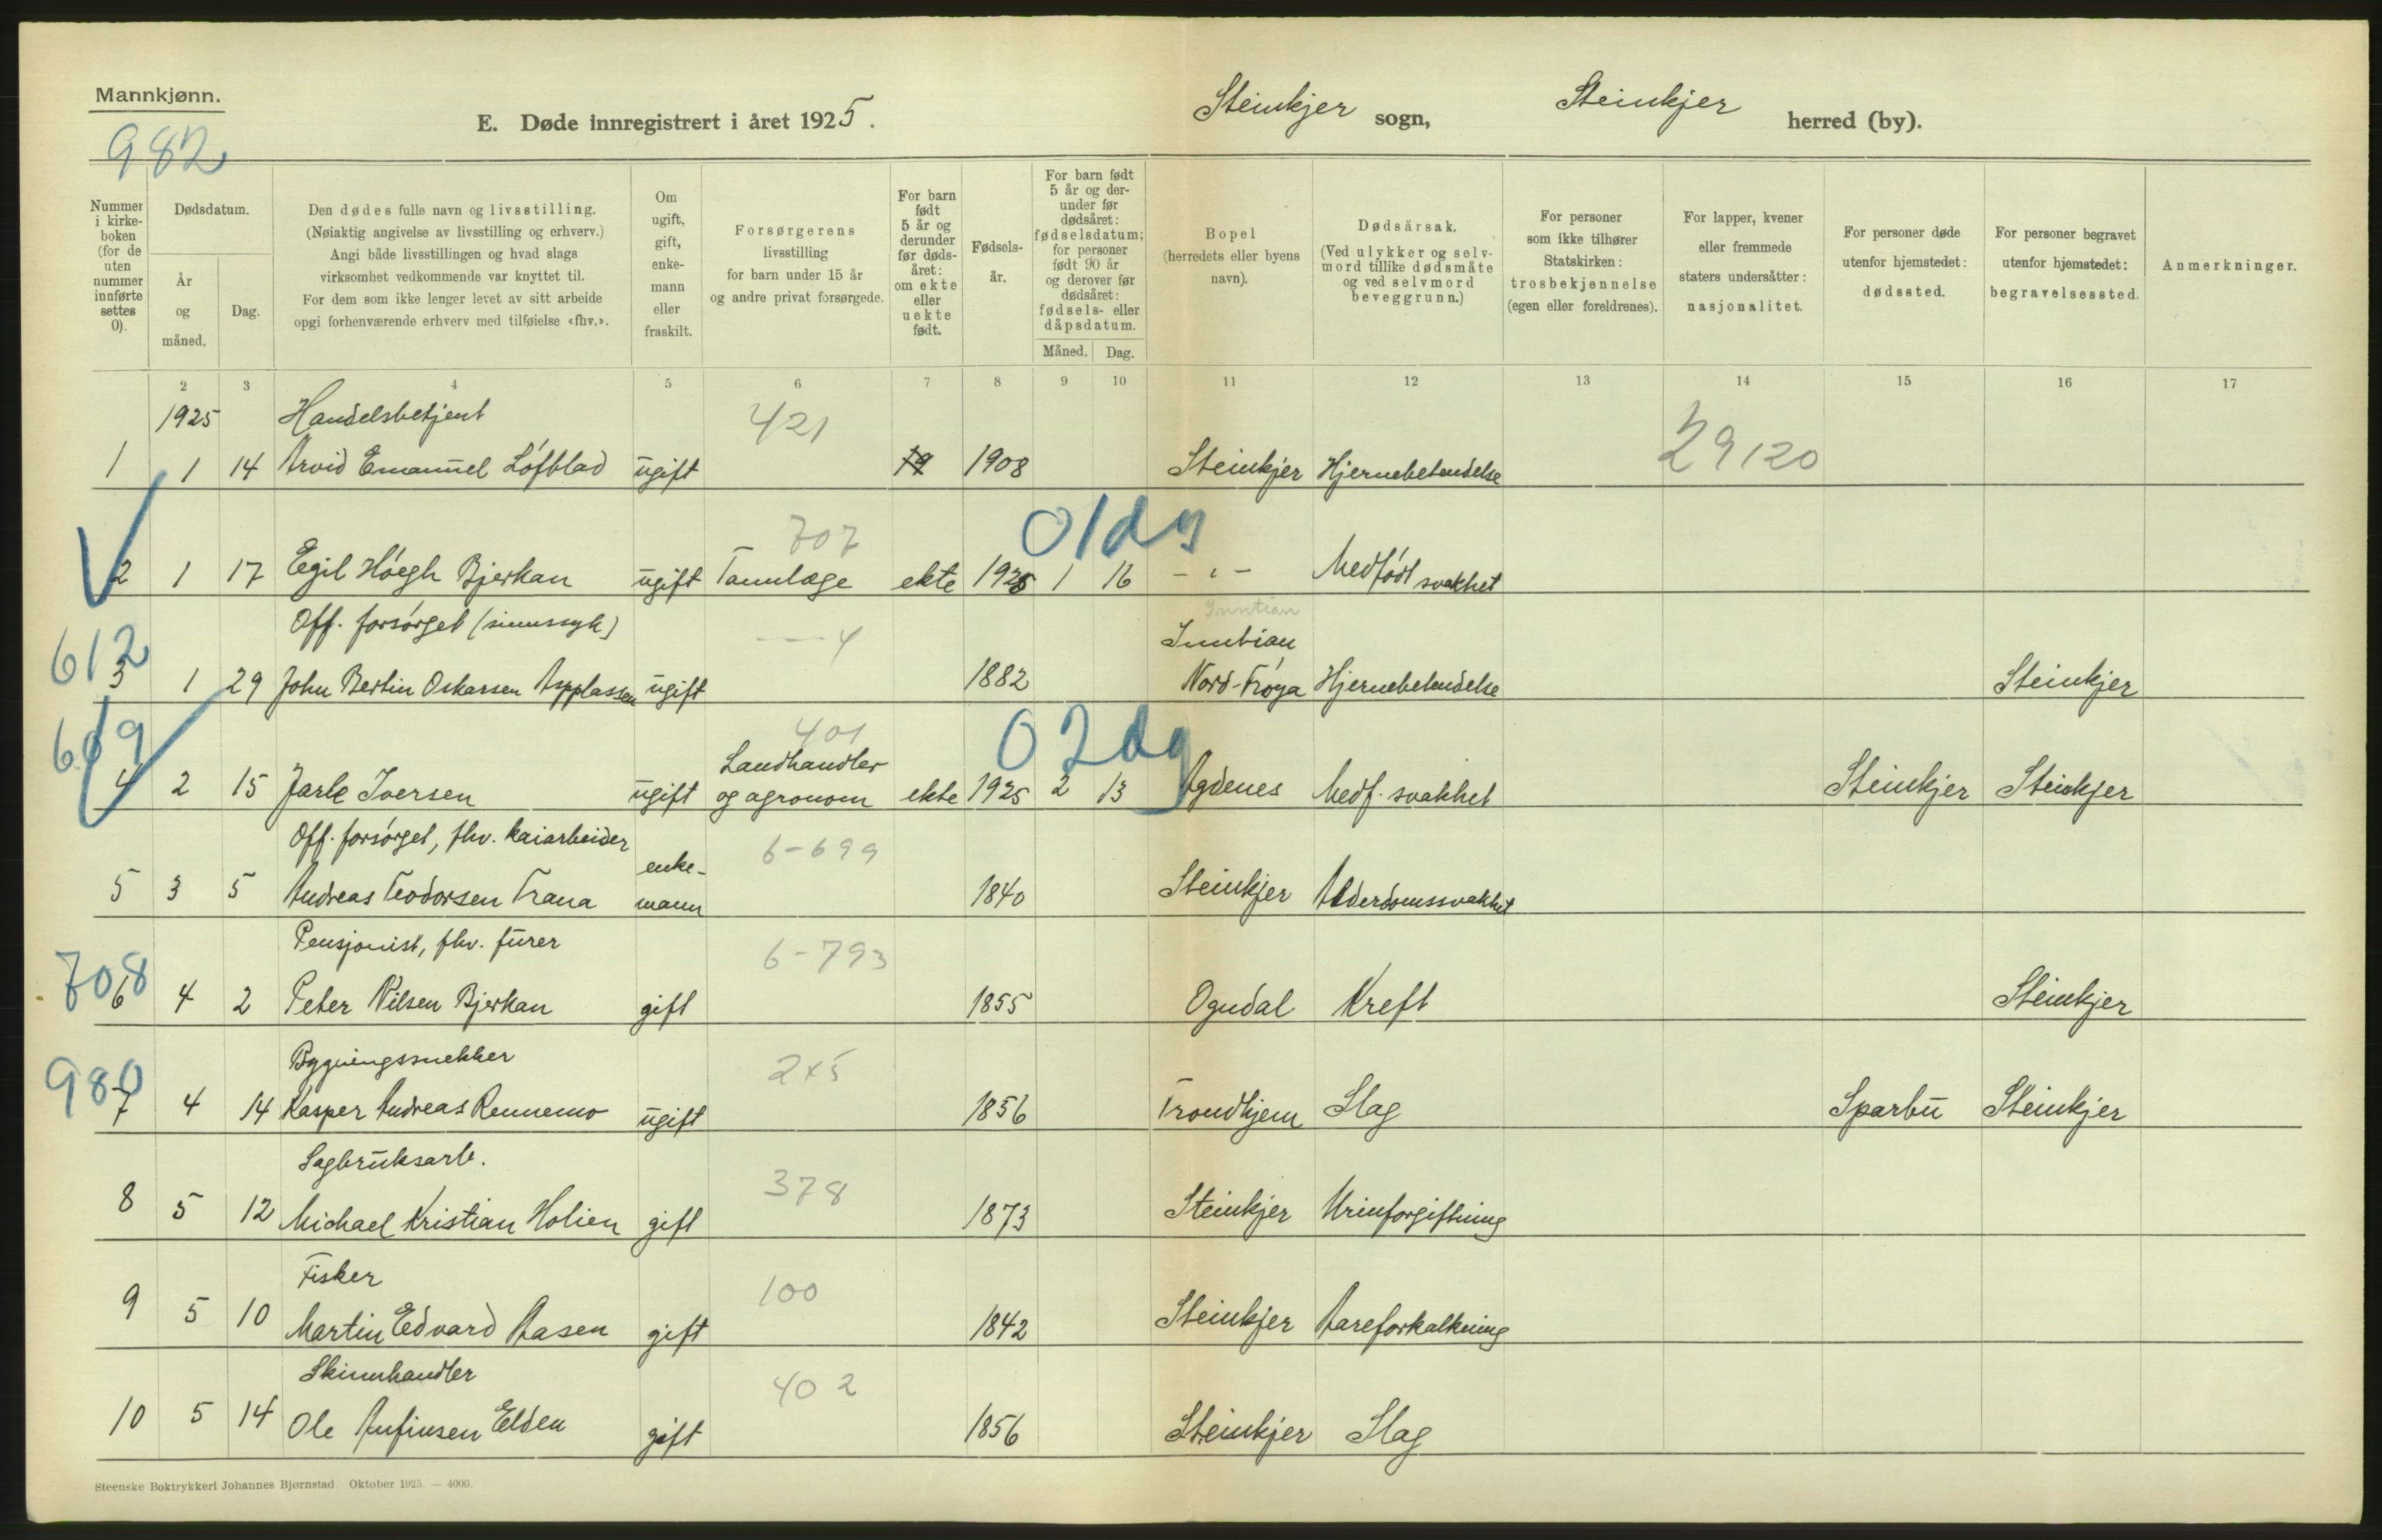 Mannkjønn.
982
E. Døde innregistrert i året 1925.
Steinkjer sogn, Steinkjer herred (by).
Nummer i kirke-boken (for de uten nummer innførte settes 0).
Dødsdatum.
År og måned.
Dag.
Den dødes fulle navn og livsstilling.
(Nøiaktig angivelse av livsstilling og erhverv.)
Angi både livsstillingen og hvad slags
virksomhet vedkommende var knyttet til.
For dem som ikke lenger levet av sitt arbeide
opgi forhenværende erhverv med tilføielse «fhv.».
Om ugift, gift, enke-mann eller fraskilt.
Forsørgerens
livsstilling
for barn under 15 år
og andre privat forsørgede.
For barn født 5 år og derunder før døds-året: om ekte eller uekte født.
Fødsels-år.
For barn født 5 år og der-under før dødsåret: fødselsdatum; for personer født 90 år og derover før dødsåret: fødsels- eller dåpsdatum.
Måned. Dag.
Bopel
(herredets eller byens
navn).
Dødsårsak.
(Ved ulykker og selv-
mord tillike dødsmåte
og ved selvmord
beveggrunn.)
For personer
som ikke tilhører
Statskirken:
trosbekjennelse
(egen eller foreldrenes).
For lapper, kvener
eller fremmede
staters undersåtter:
nasjonalitet.
For personer døde
utenfor hjemstedet:
dødssted.
For personer begravet
utenfor hjemstedet:
begravelsessted.
Anmerkninger.
2 3 4 5 6 7 8 9 10 11 12 13 14 15 16 17
1925 Handelsbetjent 421
1 1 14 Arvid Emanuel Löfblad ugift 19 1908 Steinkjer Hjernebetendelse 29120
707 01dg
2 1 17 Egil Höegh Bjerkan ugift Tannlæge ekte 1925 1 16 - " - Medfödt svakhet
Inntian
612 Off. forsörget (sinnssyk) 4 Inntian
3 1 29 John Bertin Oskarsen Aspplassen ugift 1882 Nord-Fröya Hjernebetendelse Steinkjer
619 401 02dg
Landhandler
4 2 15 Jarle Iversen ugift og agronom ekte 1925 2 13 Agdenes Medf. svakhet Steinkjer Steinkjer
Off. forsörget, fhv. kaiarbeider enke- 6-699
5 3 5 Andreas Teodorsen Trana mann 1840 Steinkjer Alderdomssvakhet
708 Pensjonist, fhv. furer 6-793
6 4 2 Peter Nilsen Bjerkan gift 1855 Ogndal Kreft Steinkjer
980 Bygningssnekker 2x5
7 4 14 Kasper Andreas Rennemo ugift 1856 Trondhjem Slag Sparbu Steinkjer
Sagbruksarb. 378
8 5 12 Michael Kristian Holien gift 1873 Steinkjer Urinforgiftning
Fisker 100
9 5 10 Martin Edvard Aasen gift 1842 Steinkjer Aareforkalkning
Skinnhandler 402
10 5 14 Ole Anfinsen Elden gift 1856 Steinkjer Slag
Steenske Boktrykkeri Johannes Bjørnstad. Oktober 1925. — 4000.